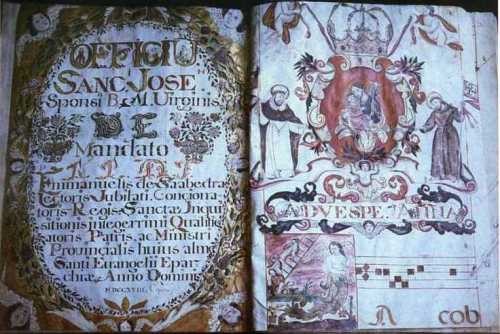 OFFICIŨ
SANC. JOSE
Sponsi B. M. Virginis
DE
Mandato
Emmanuelis de Saabedra
Lectoris Jubilati, Conciona
toris Regis Sanctæ Inqui
sitionis integerrimi Qualific
atoris Patris, ac Ministri
Provincialis huius almæ
Santi Euangelii Epar
chiæ Anno Domini
MDCCXVIII.
AD VESPE
cob